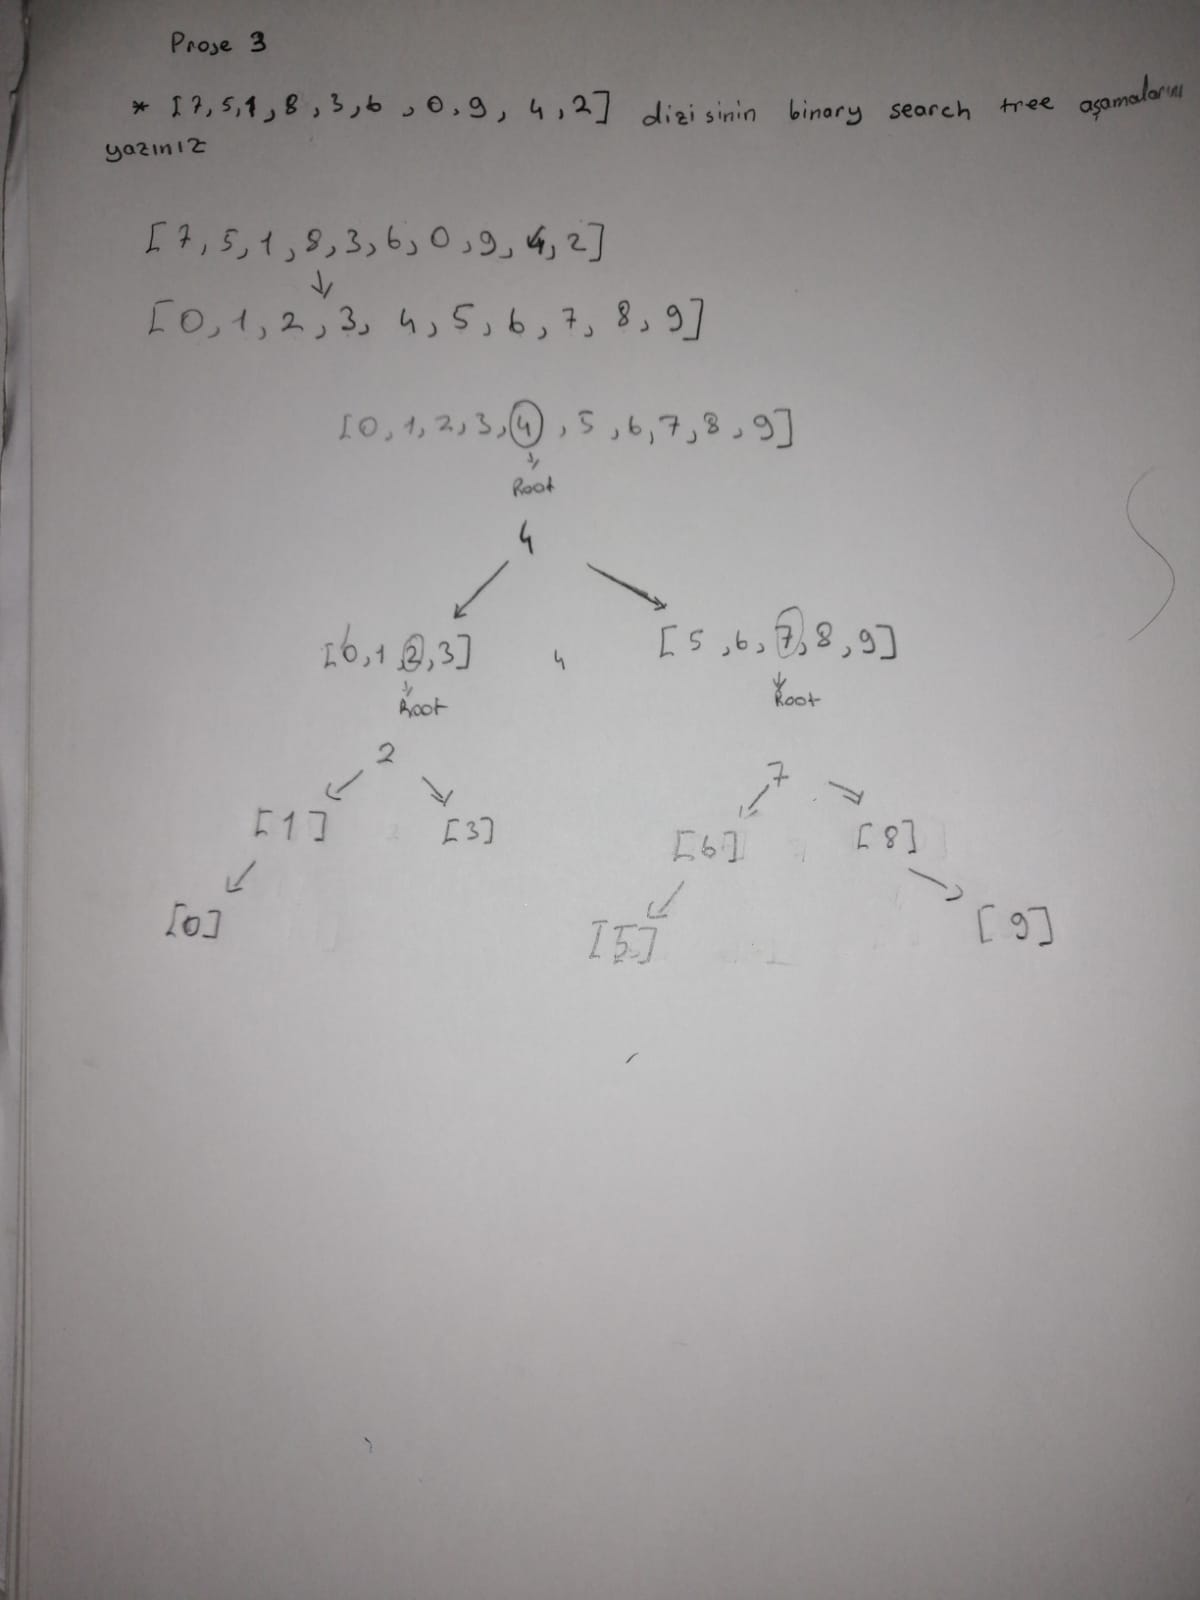 Proje 3
* [7,5,1,8,3,6,0,9,4,2] dizisinin binary search tree aşamalarını
yazınız
[7,5,1,8,3,6,0,9,4,2]
[0,1,2,3,4,5,6,7,8,9]
[0,1,2,3,4,5,6,7,8,9]
Root
4
[0,1,2,3] 4 [5,6,7,8,9]
Root Root
2 7
[1] [3] [6] [8]
[0] [5] [9]